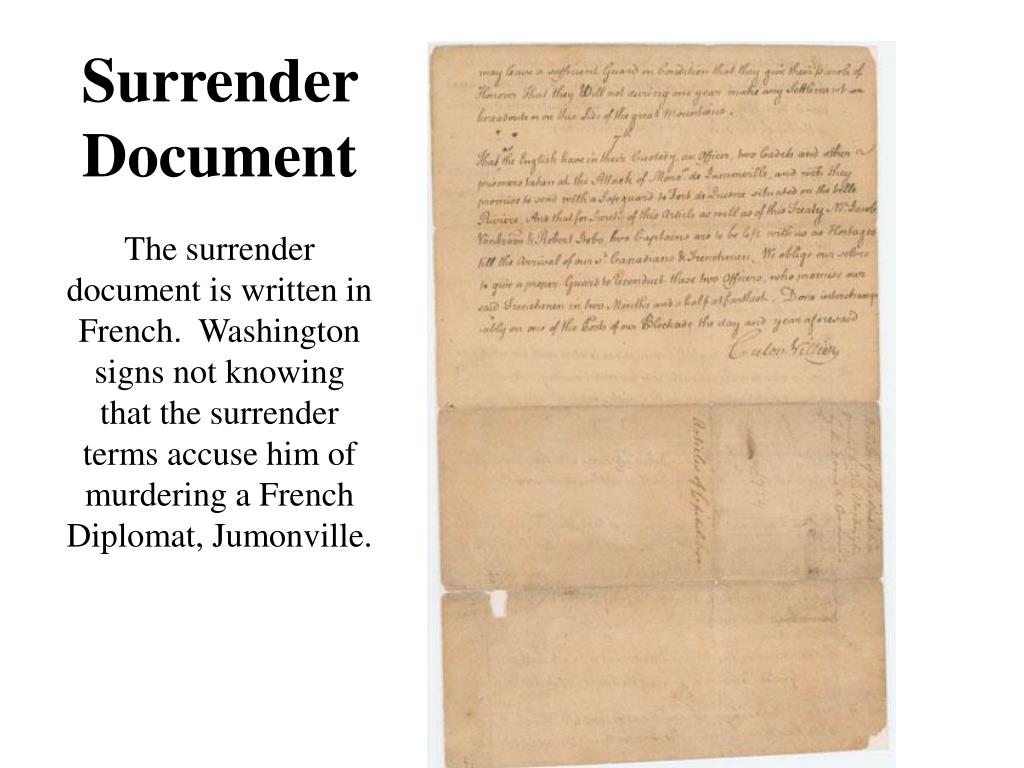 Surrender
Document
The surrender
document is written in
French.  Washington
signs not knowing
that the surrender
terms accuse him of
murdering a French
Diplomat, Jumonville.
may leave a sufficient Guard on Condition that they give their Parole of
Honour That they Will not during one year make any Settlement
on this Side of the great Mountains.
7th
That the English have in their Custody, an Officer, two Cadets and other
prisoners taken at the Attack of Monsr. de Jumonville, and
promise to send with a Safeguard to Fort de Quesne situated on the belle
Riviere, And that for Surety of this Article as well as of this Treaty, Mr. Jacob
Vanbram & Robert Stobo two Captains are to be left with us as Hostages
till the Arrival of our sd. Canadians & Frenchmen. We oblige our selves
to give a proper Guard to Reconduct these two Officers, who promise our
said Frenchmen in two Months and a half at farthest. Done interchang
ably on one of the Posts of our Blockade the day and year aforesaid
Coulon Villier
Articles of Capitulation
1754